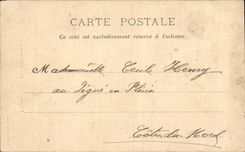 CARTE POSTALE
Ce côté est exclusivement réservé à l'adresse.
Mademoiselle Cécile Henry
au Légué en Plérin
Côtes-du-Nord